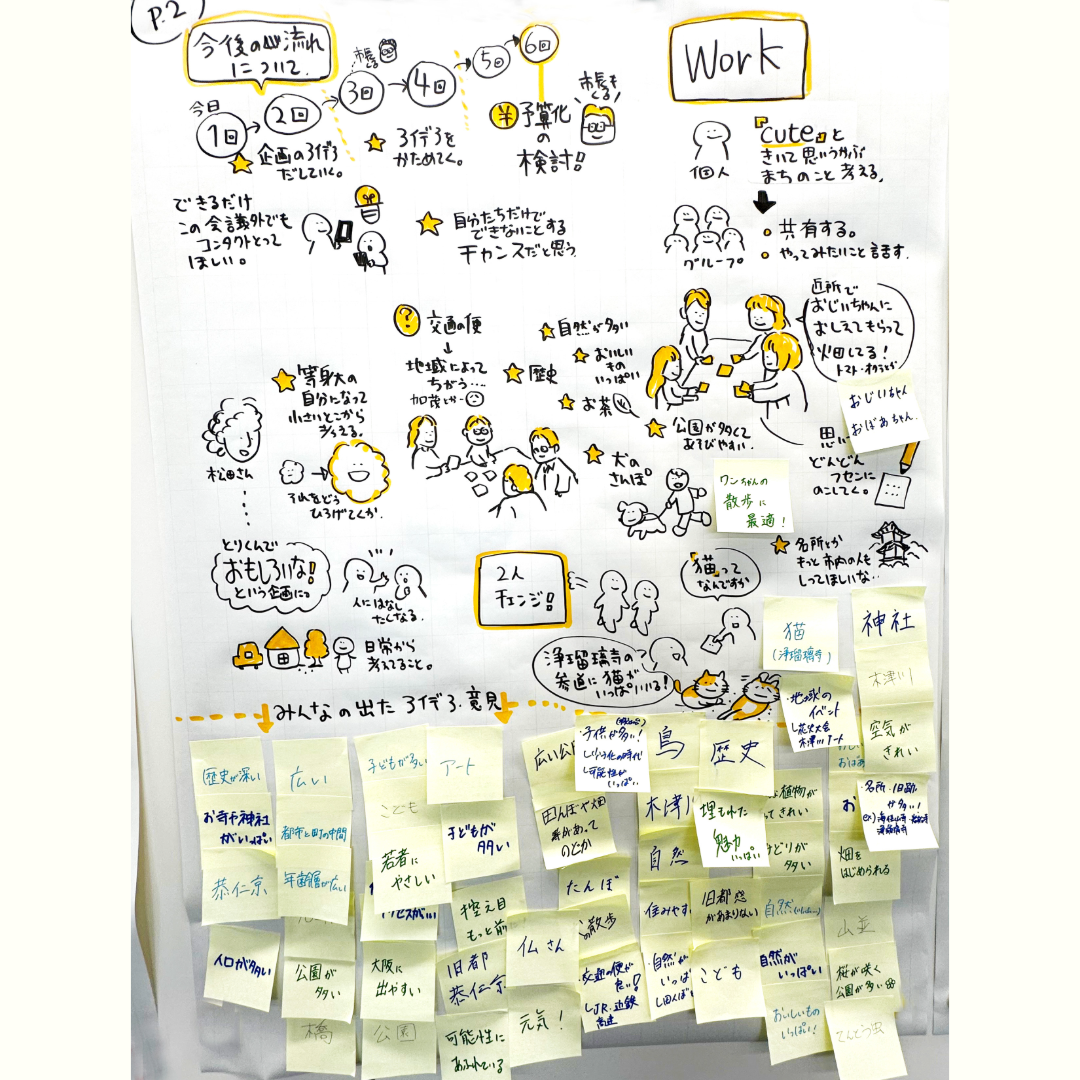 P.2
今後の流れ
について
今日
1回
2回
市長
3回
4回
5回
6回
企画のアイデア
だしていく。
アイデアを
かためてく。
¥予算化
の
検討!!
市長も
くる
できるだけ
この会議外でも
コンタクトとって
ほしい。
自分たちだけで
できないことする
チャンスだと思う
Work
個人
『cute』と
きいて思いうかぶ
まちのこと考える。
グループ
共有する。
やってみたいこと話す.
近所で
おじいちゃんに
おしえてもらって
畑してる!
トマト・オクラとか
おじいちゃん
おばあちゃん
どんどん
フセンに
のこしてく。
? 交通の便
地域によって
ちがう…
加茂とか…
自然が多い
おいしい
もの
いっぱい
歴史
お茶
公園が多くて
あそびやすい
犬の
さんぽ
ワンちゃんの
散歩に
最適!
名所とか
もっと市内の人も
しってほしいな..
等身大の
自分になって
小さいとこから
考える。
松田さん
それをどう
ひろげてくか.
とりくんで
おもしろいな!
という企画に
人にはなし
たくなる.
日常から
考えること。
2人
チェンジ!
「猫」って
なんですか
浄瑠璃寺の
参道に猫が
いっぱいいる!
みんなの出たアイデア・意見
猫
(浄瑠璃寺)
神社
木津川
空気が
きれい
地域の
イベント
花火大会
木津川アート
歴史が深い
お寺や神社
がいっぱい
恭仁京
人口が多い
広い
都市と田町の中間
年齢層が広い
公園が
多い
橋
子どもが多い
こども
若者に
やさしい
大阪に
出やすい
公園
アート
子どもが
多い
控え目
もっと前
旧都
恭仁京
可能性に
あふれている
仏さん
元気!
広い公園
田んぼや畑
があって
のどか
たんぼ
の散歩
交通の便が
JR.近鉄
高速
子供が多い!
少子化の時代
可能性が
いっぱい
鳥
木津川
自然
住みやす
自然が
いっぱい
田んぼ
歴史
埋もれた
魅力
いっぱい
旧都感
があまりない
こども
植物が
きれい
みどりが
多い
自然
自然が
いっぱい
おいしいもの
いっぱい!
おばあ
名所・旧跡
が多い!
畑を
はじめられる
山並
桜が咲く
公園が多い
てんとう虫